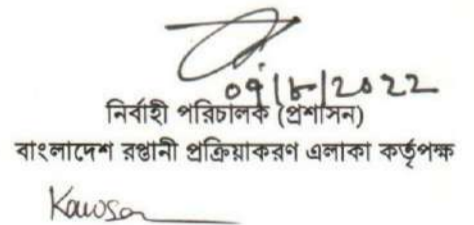 09/৮/2022
নির্বাহী পরিচালক (প্রশাসন)
বাংলাদেশ রপ্তানী প্রক্রিয়াকরণ এলাকা কর্তৃপক্ষ
Kawsar